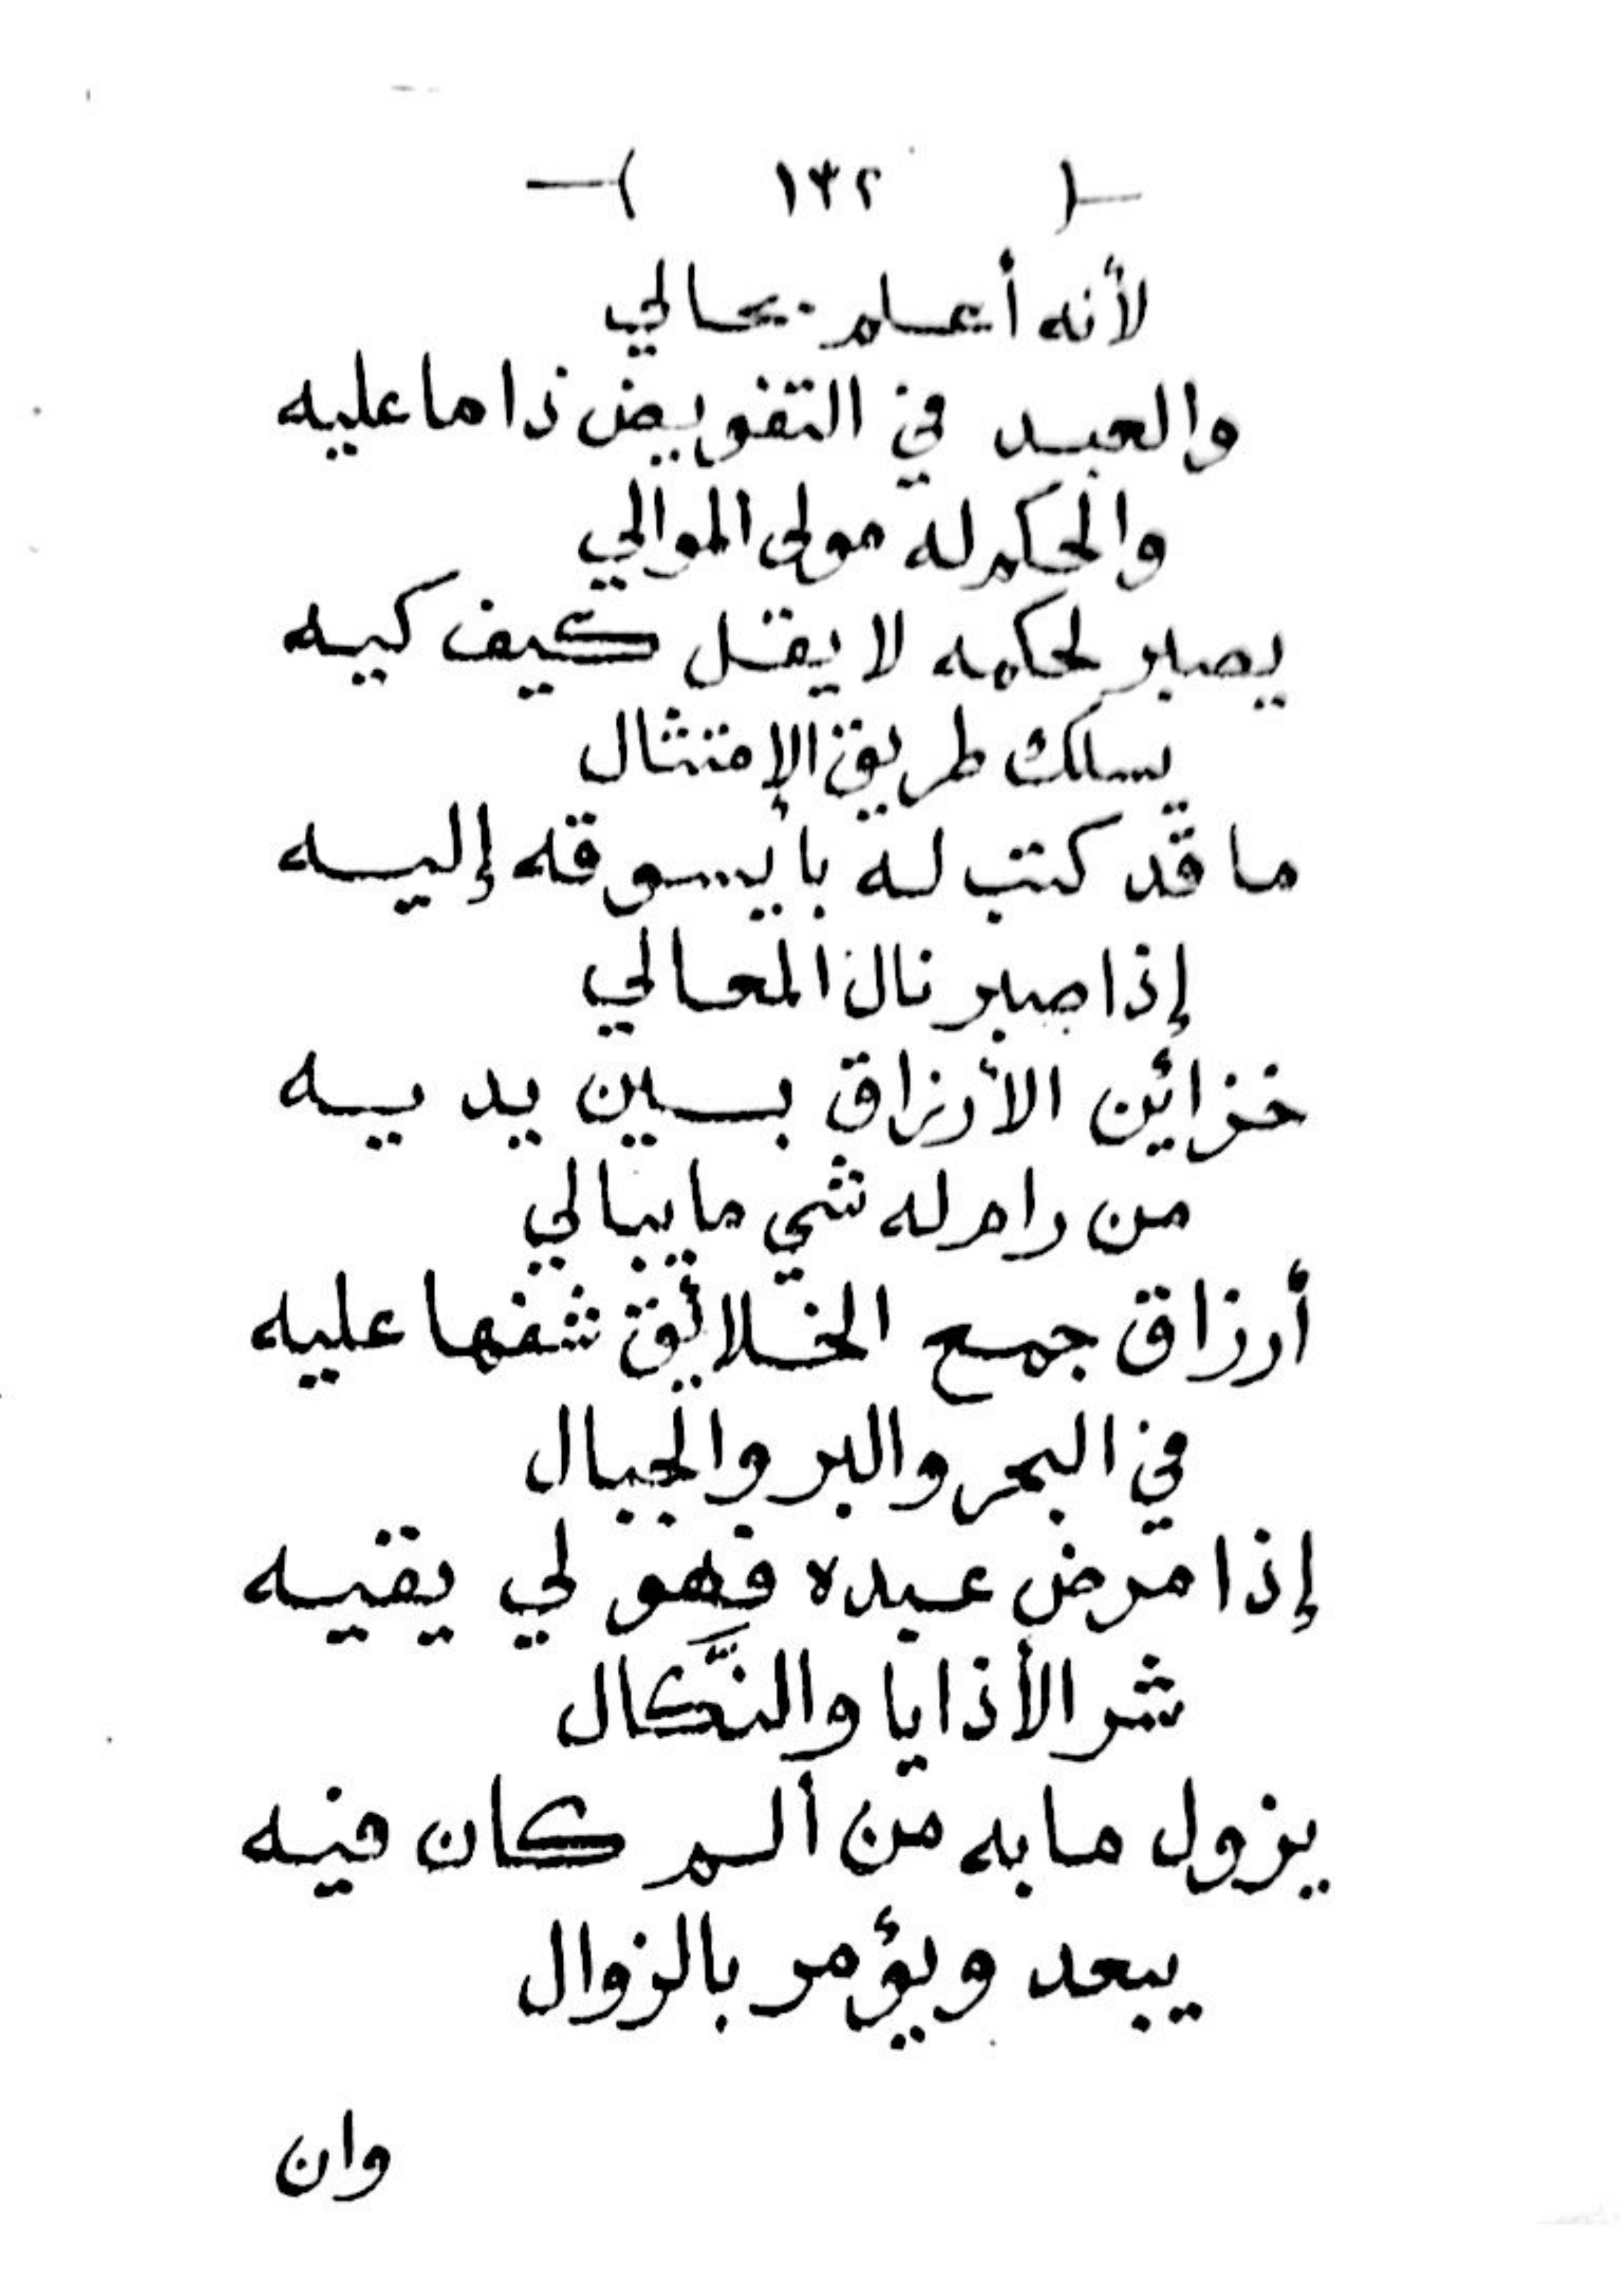 -( ١٣٢ )-
لأنه أعلم بحالي
والعبد في التفويض ذا ما عليه
والحكم له مولى الموالي
يصبر لحكمه لا يقل كيف كيه
يسلك طريق الإمتثال
ما قد كتب له با يسوقه إليه
إذا صبر نال المعالي
خزائن الأرزاق بين يديه
من رام له شي ما يبالي
أرزاق جمع الخلائق شفها عليه
في البحر والبر والجبال
إذا مرض عبده فهو لي يقيه
شر الأذايا والنَّكال
يزول ما به من ألم كان فيه
يبعد ويؤمر بالزوال
وان